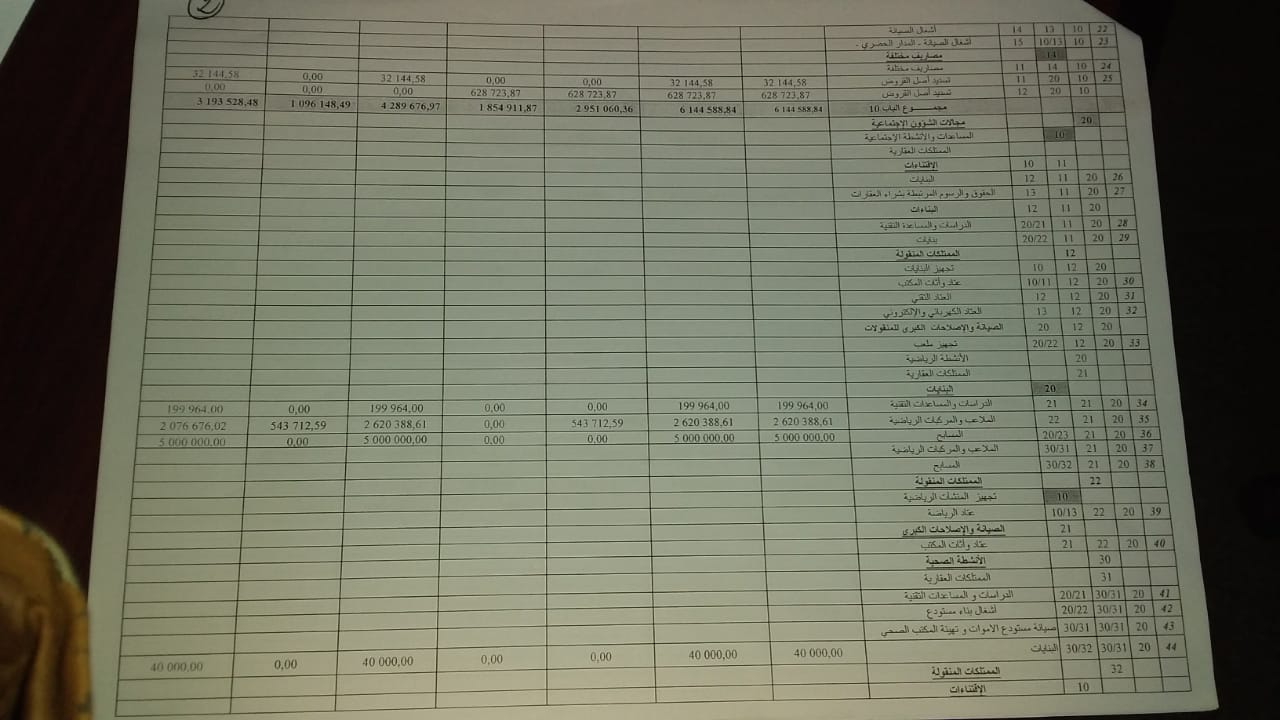 2
22 10 13 14 أشغال الصيانة
23 10 10/13 15 أشغال الصيانة - المدار الحضري -
14 مصاريف مختلفة
24 10 14 11 مصاريف مختلفة
25 10 20 11 تسديد أصل القروض 32 144,58 32 144,58 0,00 0,00 32 144,58 0,00 32 144,58
10 20 12 تسديد أصل القروض 628 723,87 628 723,87 628 723,87 628 723,87 0,00 0,00 0,00
مجمــــوع الباب 10 6 144 588,84 6 144 588,84 2 951 060,36 1 854 911,87 4 289 676,97 1 096 148,49 3 193 528,48
20 مجالات الشؤون الإجتماعية
10 المساعدات والأنشطة الإجتماعية
الممتلكات العقارية
11 10 الإقتناءات
26 20 11 12 البنايات
27 20 11 13 الحقوق والرسوم المرتبطة بشراء العقارات
20 11 12 البناءات
28 20 11 20/21 الدراسات والمساعدة التقنية
29 20 11 20/22 بنايات
12 الممتلكات المنقولة
20 12 10 تجهيز البنايات
30 20 12 10/11 عتاد وأثاث المكتب
31 20 12 12 العتاد التقني
32 20 12 13 العتاد الكهربائي والإلكتروني
20 12 20 الصيانة والإصلاحات الكبرى للمنقولات
33 20 12 20/22 تجهيز ملعب
20 الأنشطة الرياضية
21 الممتلكات العقارية
20 البنايات
34 20 21 21 الدراسات والمساعدات التقنية 199 964,00 199 964,00 0,00 0,00 199 964,00 0,00 199 964,00
35 20 21 22 الملاعب والمركبات الرياضية 2 620 388,61 2 620 388,61 543 712,59 0,00 2 620 388,61 543 712,59 2 076 676,02
36 20 21 20/23 المسابح 5 000 000,00 5 000 000,00 0,00 0,00 5 000 000,00 0,00 5 000 000,00
37 20 21 30/31 الملاعب والمركبات الرياضية
38 20 21 30/32 المسابح
22 الممتلكات المنقولة
10 تجهيز المنشآت الرياضية
39 20 22 10/13 عتاد الرياضة
21 الصيانة والإصلاحات الكبرى
40 20 22 21 عتاد وأثاث المكتب
30 الأنشطة الصحية
31 الممتلكات العقارية
41 20 30/31 20/21 الدراسات و المساعدات التقنية
42 20 30/31 20/22 أشغال بناء مستودع
43 20 30/31 30/31 صيانة مستودع الاموات و تهيئة المكتب الصحي
44 20 30/31 30/32 البنايات 40 000,00 40 000,00 0,00 0,00 40 000,00 0,00 40 000,00
32 الممتلكات المنقولة
10 الإقتناءات